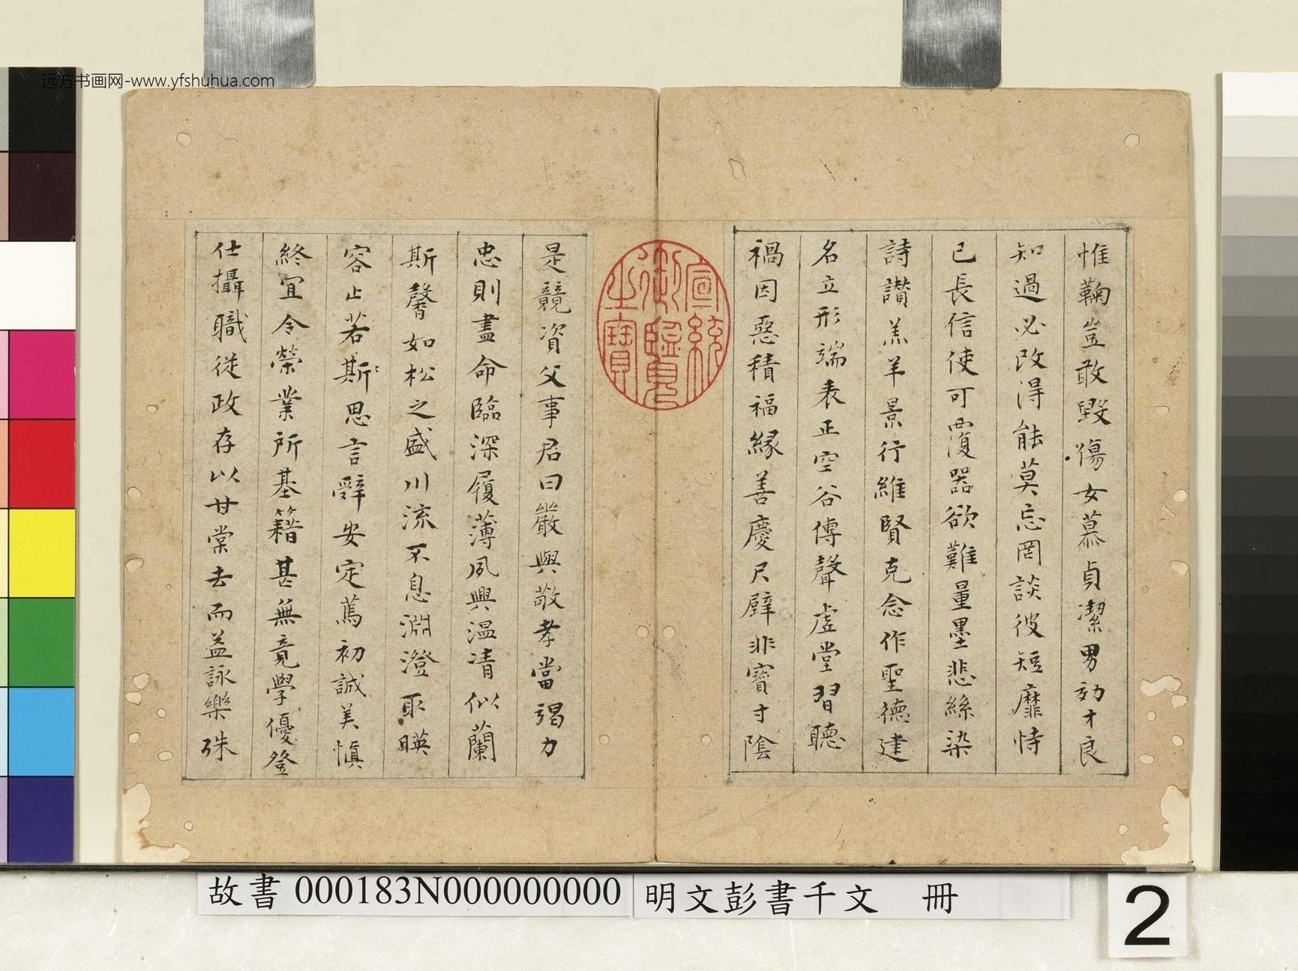 远方书画网-www.yfshuhua.com
惟鞠豈敢毀傷女慕貞潔男効才良
知過必改得能莫忘罔談彼短靡恃
己長信使可覆器欲難量墨悲絲染
詩讃羔羊景行維賢克念作聖德建
名立形端表正空谷傳聲虛堂習聽
禍因惡積福緣善慶尺璧非寶寸陰
宣統御覽之寶
是競資父事君曰嚴與敬孝當竭力
忠則盡命臨深履薄夙興溫凊似蘭
斯馨如松之盛川流不息淵澄取暎
容止若斯思言辭安定篤初誠美慎
終宜令榮業所基籍甚無竟學優登
仕攝職從政存以甘棠去而益詠樂殊
故書 000183N000000000 明文彭書千文 冊
2